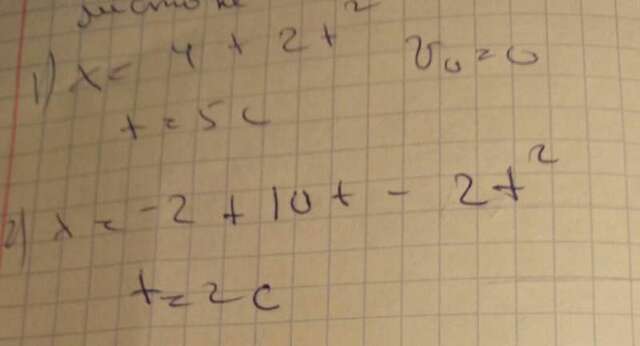 1) x = 4 + 2t² υ₀ = 0
t = 5 с
2) x = -2 + 10t - 2t²
t = 2 с